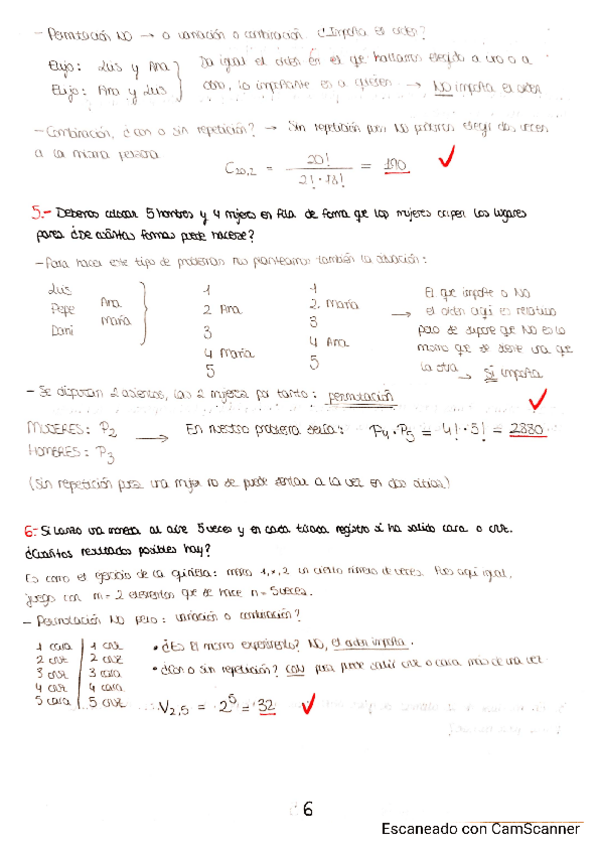 - Permutación NO → o variación o combinación ¿Importa el orden?
Elijo: Luis y Ana
Elijo: Ana y Luis
Da igual el orden en el que hallamos elegido a uno o a
otro, lo importante es a quien → NO importa el orden
- Combinación, ¿con o sin repetición? → Sin repetición pues NO podemos elegir dos veces
a la misma persona
C20,2 = 20! / 2! · 18! = 190 ✓
5.- Debemos colocar 5 hombres y 4 mujeres en fila de forma que las mujeres ocupen los lugares
pares ¿De cuántas formas puede hacerse?
- Para hacer este tipo de problemas nos planteamos también la situación:
Luis
Pepe Ana
Dani María
1
2 Ana
3
4 María
5
1
2. María
3
4 Ana
5
→ El que importe o NO
el orden aquí es relativo
pero se supone que NO es lo
mismo que se siente una que
la otra → Sí importa
- Se disputan 2 asientos, las 2 mujeres por tanto: permutación ✓
MUJERES: P2
HOMBRES: P3
→ En nuestro problema sería: P4 · P5 = 4! · 5! = 2880
(Sin repetición pues una mujer no se puede sentar a la vez en dos sitios)
6.- Si lanzo una moneda al aire 5 veces y en cada tirada registro si ha salido cara o cruz.
¿Cuántos resultados posibles hay?
Es como el ejercicio de la quiniela: 1, x, 2 un cierto número de veces. Pues aquí igual,
juego con m = 2 elementos que se hace n = 5 veces.
- Permutación NO pero: variación o combinación?
1 cara | 1 cruz
2 cruz | 2 cruz
3 cruz | 3 cara
4 cruz | 4 cara
5 cara | 5 cruz
• ¿Es el mismo experimento? NO, el orden importa.
• ¿Con o sin repetición? CON pues puede salir cruz o cara más de una vez
V2,5 = 2^5 = 32 ✓
6
Escaneado con CamScanner